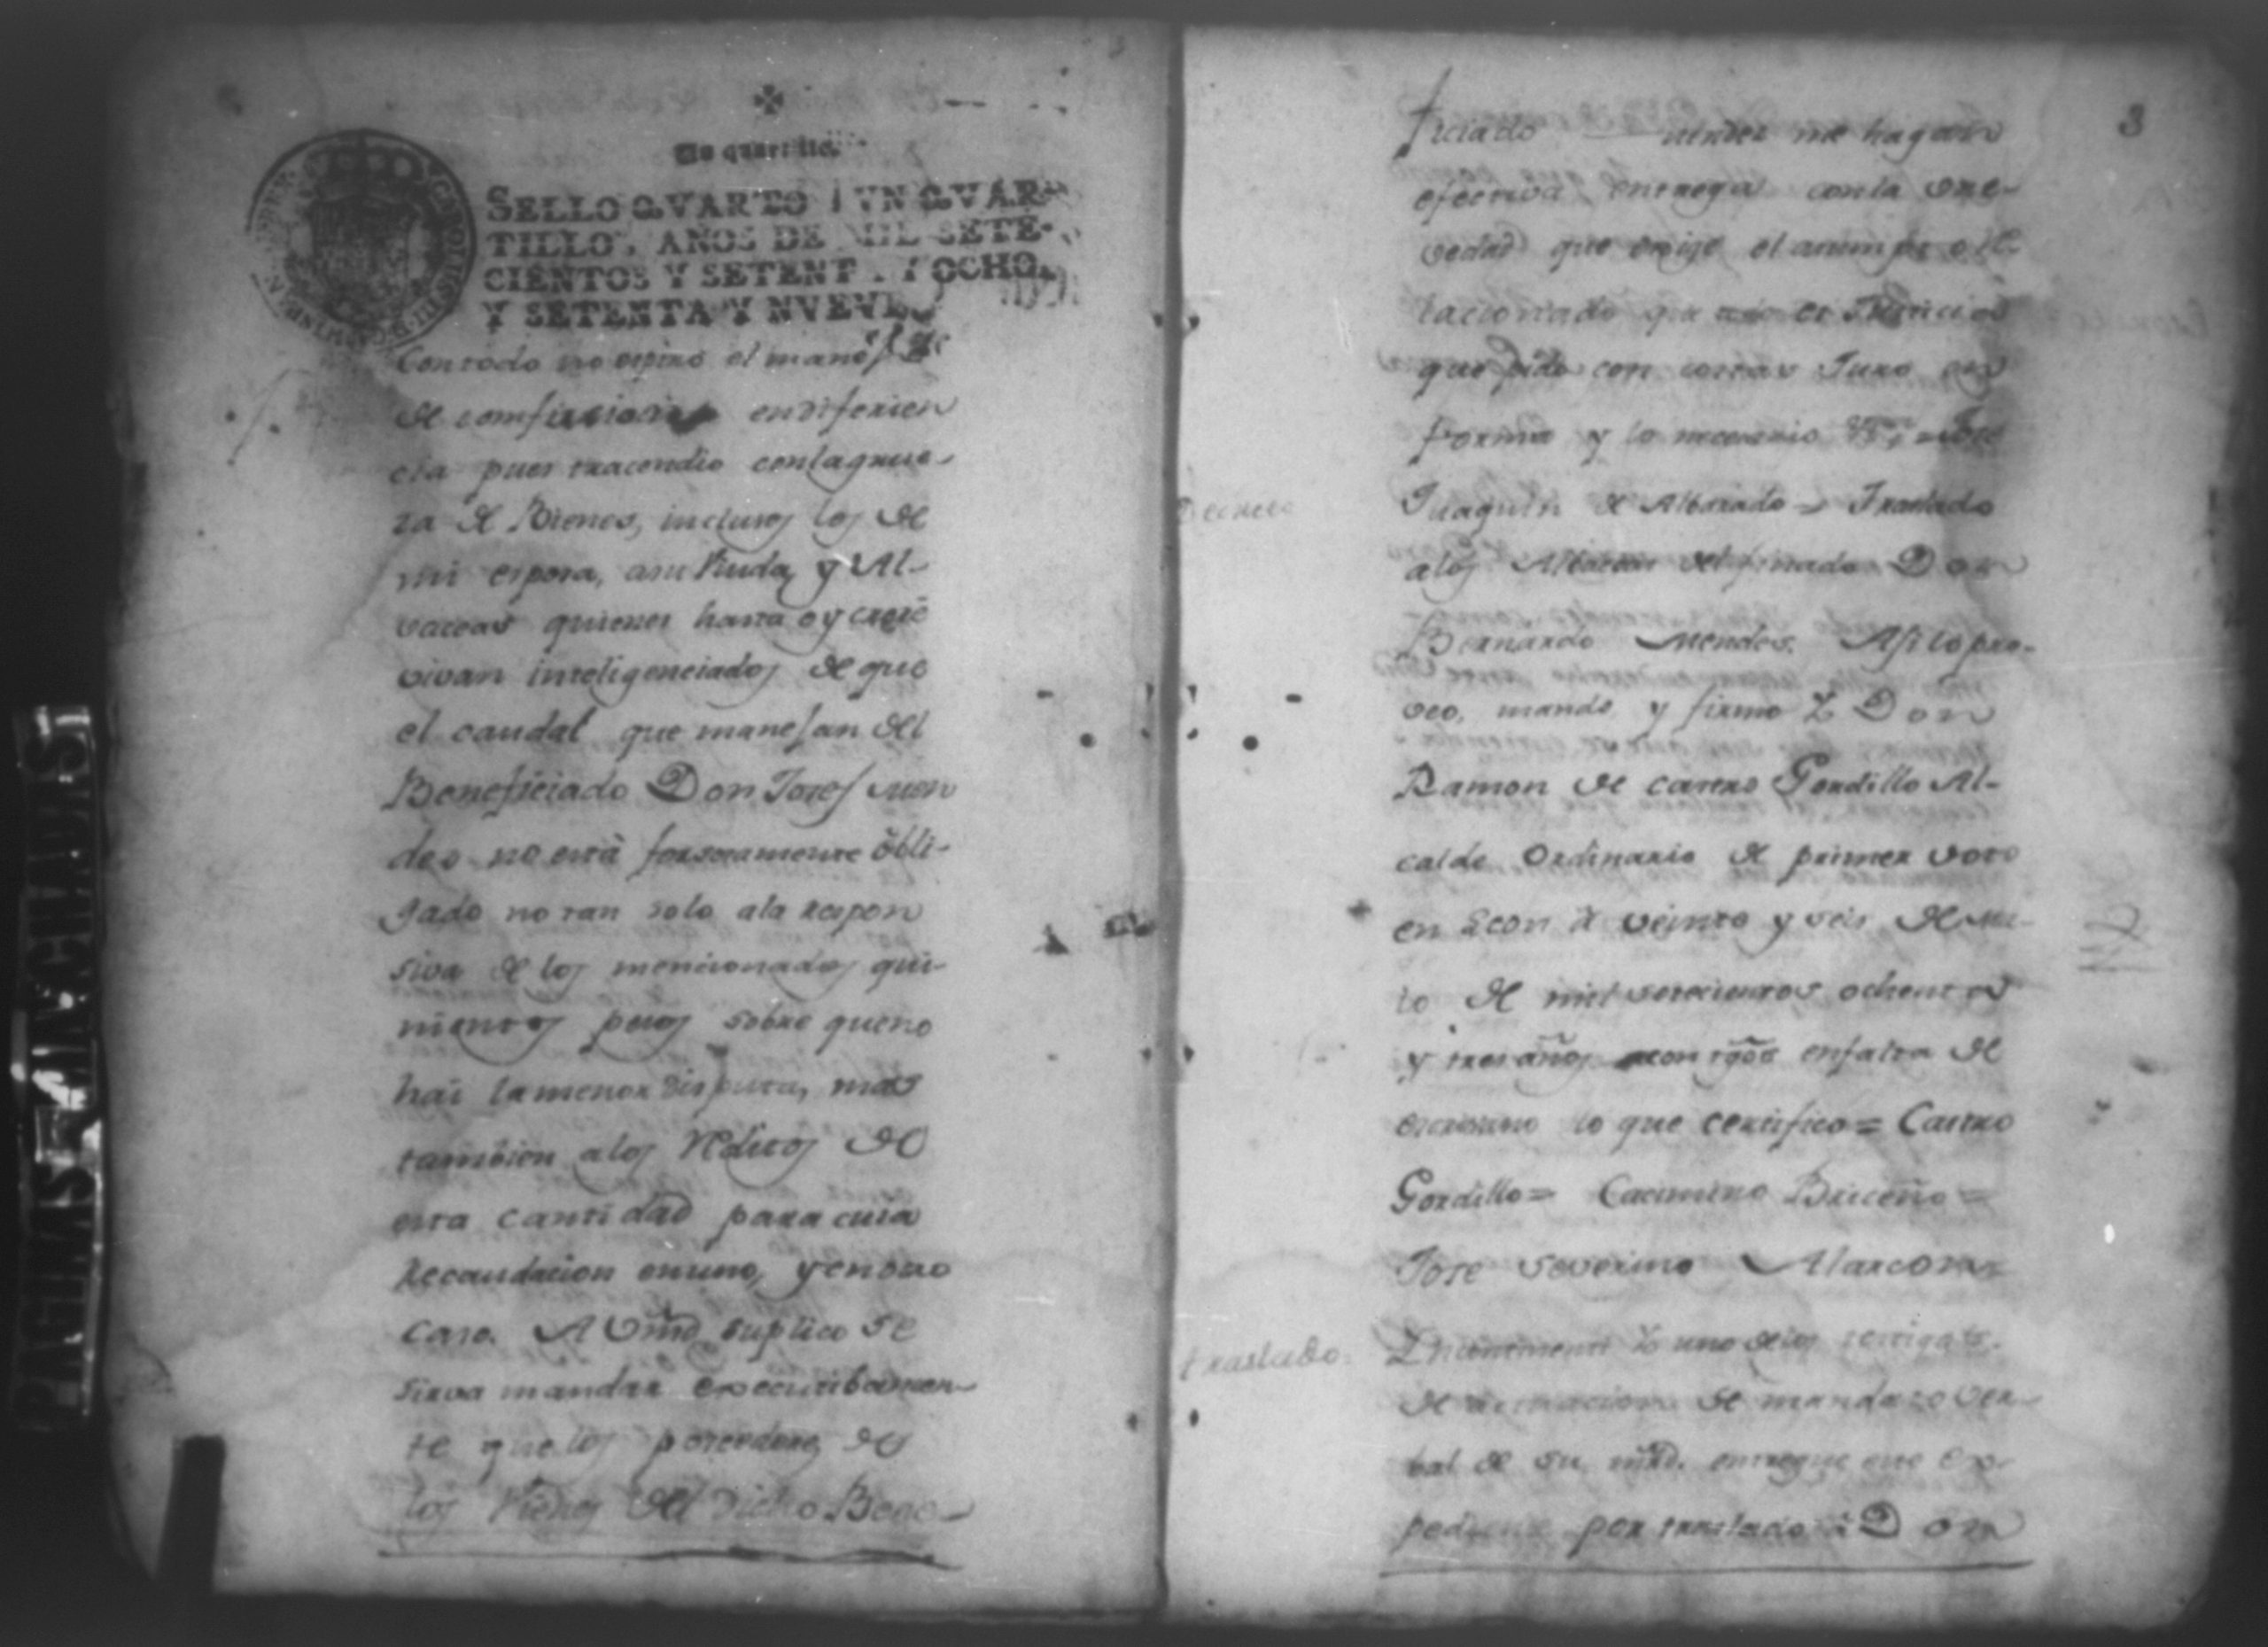 Un quartillo.
SELLO QVARTO, VN QVAR-
TILLO, AÑOS DE MIL SETE-
CIENTOS Y SETENTA Y OCHO,
Y SETENTA Y NVEVE.
Con todo no espiró el
de comfuscion endiferien
cia pues tracendio conlagrue-
za de Bienes, inclusos los de
mi esposa, asu Viuda, y Al-
vaceas quienes hasta oy creiê
vivan inteligenciados de que
el caudal que manejan del
Beneficiado Don Josef Men
des no está forsosamente obli-
gado no tan solo ala respon
siva de los mencionados qui-
nientos pesos sobre queno
hai lamenor disputa, mas
tambien alos Reditos de
esta cantidad para cuia
Recaudacion enuno, yenotro
caso. A Vmd suplico se
sirva mandar executibamen-
te quelos poseedores de
los Vienes del Dicho Bene-
3
ficiado Mendes me hagan
efectiva entrega conla bre-
vedad que exije el asumpto re-
lacionado que es Justicia
que pido con costas Juro en
forma y lo necesario
Decreto
Juaquin de Albarado = Traslado
alos Albaceas del finado Don
Bernardo Mendes. Asi lo pro-
veo, mando, y firmo Yo Don
Ramon de Castro Gordillo Al-
calde Ordinario de primer voto
en Leon â veinte y seis de Ju-
lio de mil setecientos ochenta
y tres años con tgõs enfalta de
escribano lo que certifico = Castro
Gordillo = Cacimiro Briceño =
Jose Severino Alarcon
traslado.
Yncontinenti Yo uno delos testigos
de actuacion de mandato ver-
bal de su mrd. entregue este Ex-
pediente por traslado â Don
PAGINAS MANCHADAS